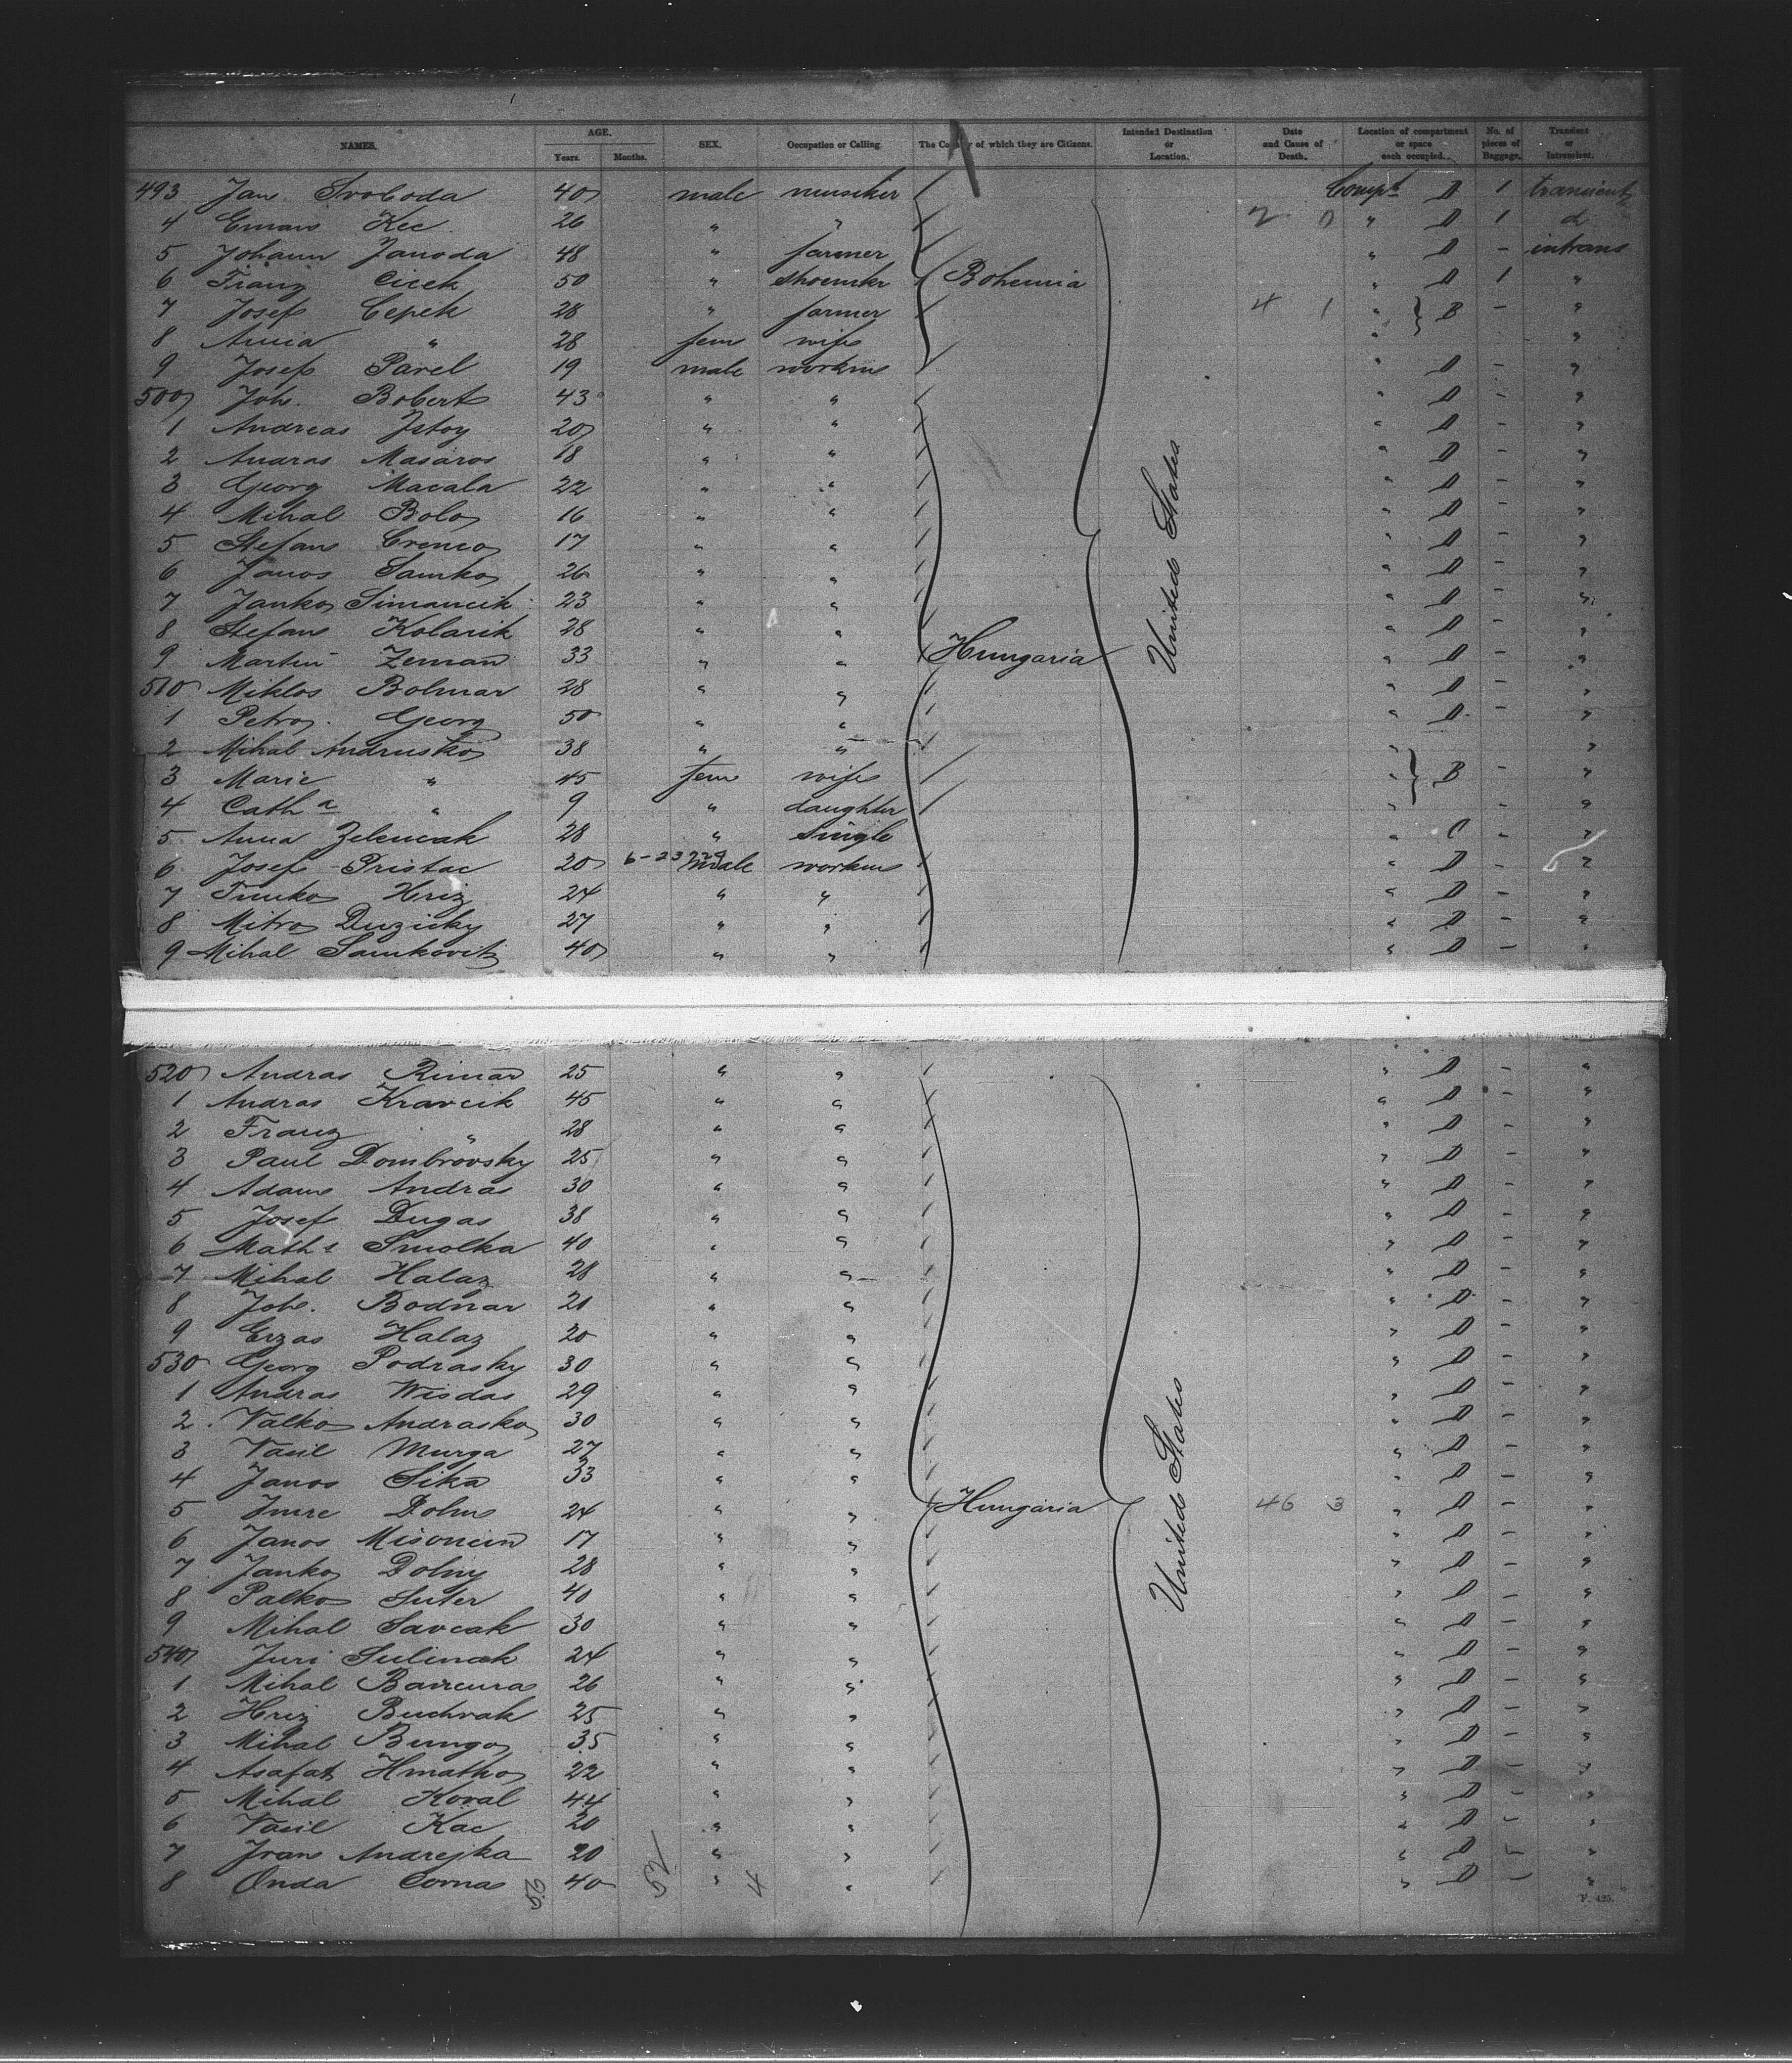 NAMES. AGE. Years. Months. SEX. Occupation or Calling. The Co y of which they are Citizens. Intended Destination or Location. Date and Cause of Death. Location of compartment or space each occupied. No. of pieces of Baggage. Transient or Intransient.
493 Jan Svoboda 40 male musiker Compt D 1 transient
4 Eman Kec 26 " " 2 0 " D 1 d
5 Johann Janoda 48 " farmer " D - intrans
6 Franz Cicek 50 " shoemkr Bohemia " D 1 "
7 Josef Cepek 28 " farmer 4 1 " B - "
8 Anna " 28 fem wife " "
9 Josef Pavel 19 male workm " D - "
500 Joh. Bobert 43 " " " D - "
1 Andreas Jetoy 20 " " " D - "
2 Andras Masaros 18 " " " D - "
3 Georg Macala 22 " " " D - "
4 Mihal Bolo 16 " " " D - "
5 Stefan Crenco 17 " " " D - "
6 Janos Samko 26 " " " D - "
7 Janko Simancik 23 " " " D - "
8 Stefan Kolarik 28 " " " D - "
9 Martin Zeman 33 " " Hungaria United States " D - "
510 Miklos Bolmar 28 " " " D - "
1 Petro Georg 50 " " " D - "
2 Mihal Andrusko 38 " " " "
3 Marie " 45 fem wife " B - "
4 Catha " 9 " daughter " - "
5 Anna Zelencak 28 " single " C - "
6 Josef Pristac 20 male workm " D - "
7 Timko Hriz 24 " " " D - "
8 Mitro Duzicky 27 " " " D - "
9 Mihal Samkovitz 40 " " " D - "
520 Andras Rimar 25 " " " D - "
1 Andras Kravcik 45 " " " D - "
2 Franz " 28 " " " D - "
3 Paul Dombrovsky 25 " " " D - "
4 Adam Andras 30 " " " D - "
5 Josef Dugas 38 " " " D - "
6 Maths Smolka 40 " " " D - "
7 Mihal Halaz 28 " " " D - "
8 Joh. Bodnar 21 " " " D - "
9 Erzas Halaz 20 " " " D - "
530 Georg Podrasky 30 " " " D - "
1 Andras Wisdas 29 " " " D - "
2 Valko Andrasko 30 " " " D - "
3 Vasil Murga 27 " " " D - "
4 Janos Sika 33 " " " D - "
5 Imre Dolns 24 " " Hungaria United States 46 3 " D - "
6 Janos Misoncin 17 " " " D - "
7 Janko Dolny 28 " " " D - "
8 Palko Suter 40 " " " D - "
9 Mihal Savcak 30 " " " D - "
540 Juri Sulinak 24 " " " D - "
1 Mihal Barcuras 26 " " " D - "
2 Hriz Buchvak 25 " " " D - "
3 Mihal Bungo 35 " " " D - "
4 Asafat Hmatko 22 " " " D - "
5 Mihal Koval 44 " " " D - "
6 Vasil Kac 20 " " " D - "
7 Ivan Andrejka 20 " " " D - "
8 Onda Cornas 40 " " " D - "
52 4
F. 425.